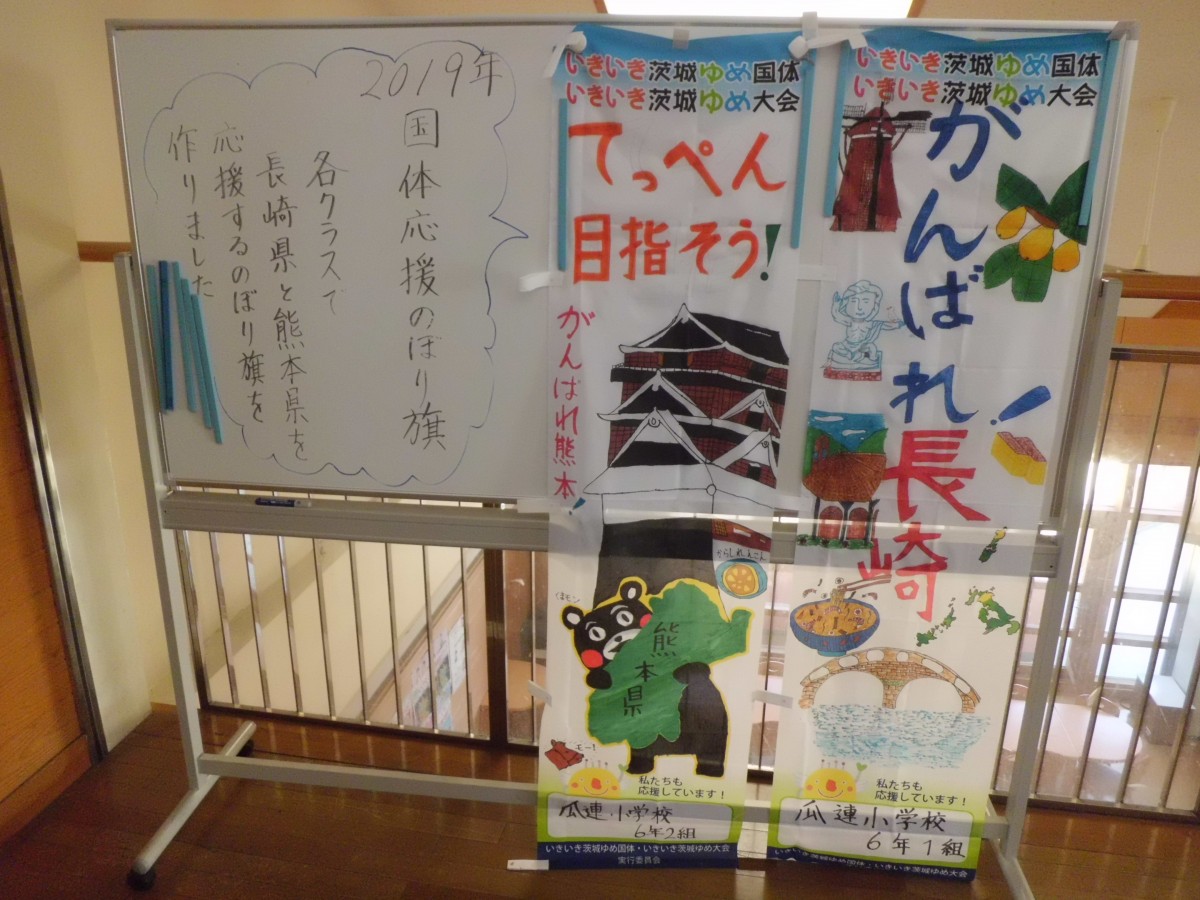 2019年
国体応援のぼり旗
各クラスで
長崎県と熊本県を
応援するのぼり旗を
作りました
いきいき茨城ゆめ国体
いきいき茨城ゆめ大会
てっぺん
目指そう!
がんばれ熊本!
からしれんこん
くまモン
熊本県
モー!
私たちも
応援しています!
瓜連小学校
6年2組
いきいき茨城ゆめ国体・いきいき茨城ゆめ大会
実行委員会
いきいき茨城ゆめ国体
いきいき茨城ゆめ大会
がんばれ!
長崎
私たちも
応援しています!
瓜連小学校
6年1組
いきいき茨城ゆめ国体・いきいき茨城ゆめ大会